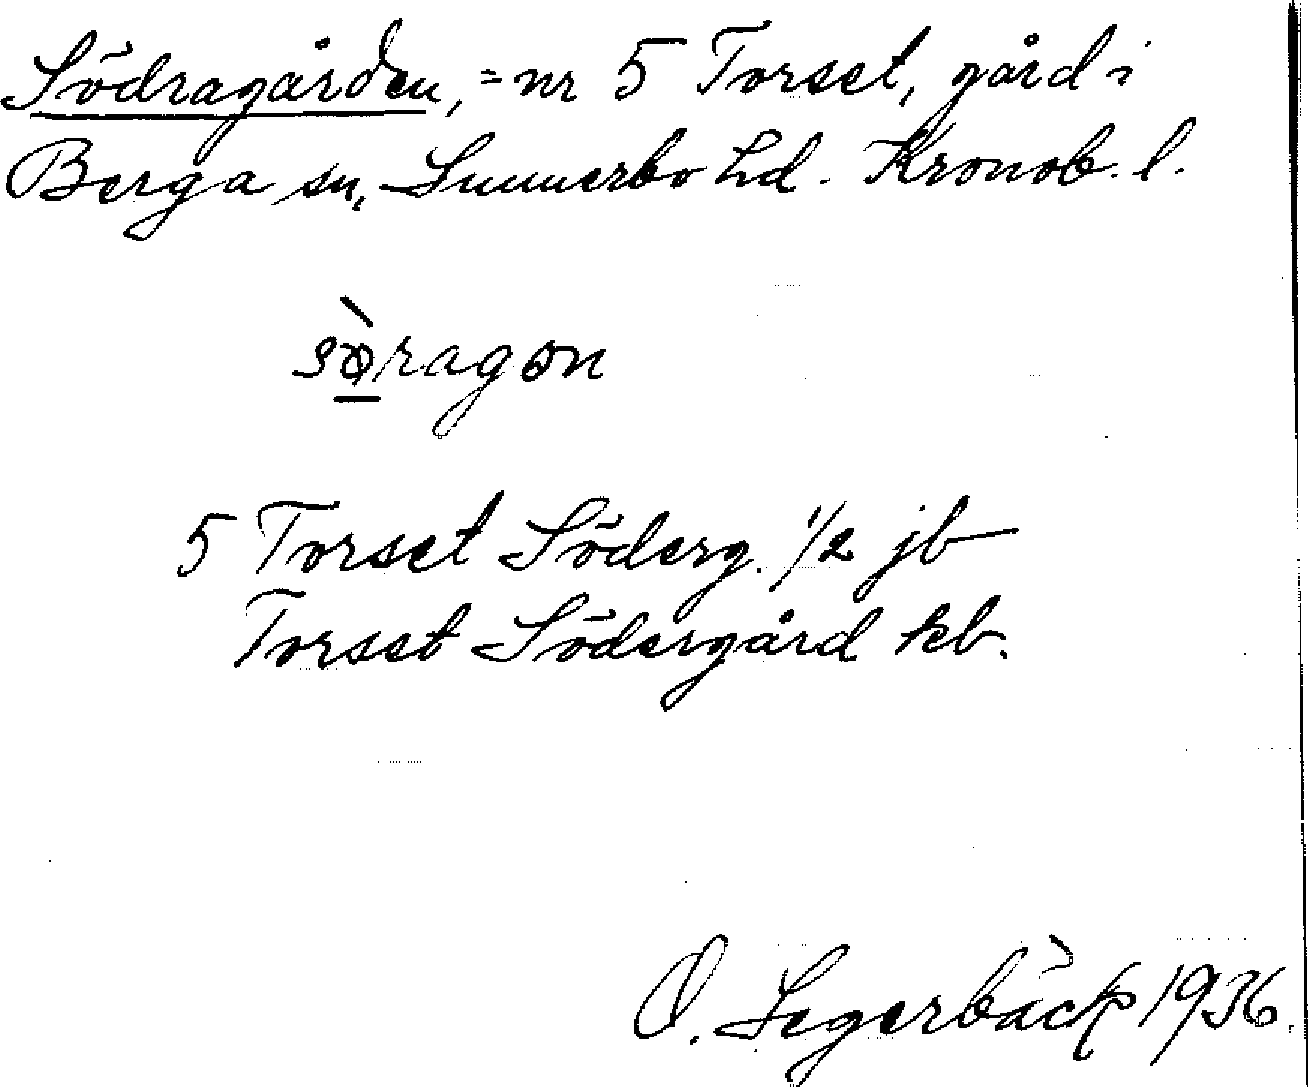 Södragården, = nr 5 Torset, gård i
Berga sn, Sunnerbo hd. Kronob. l.
sø̀ragɷn
5 Torset Söderg. 1/2 jb
Torset Södergård kb.
O. Segerbäck 1936.